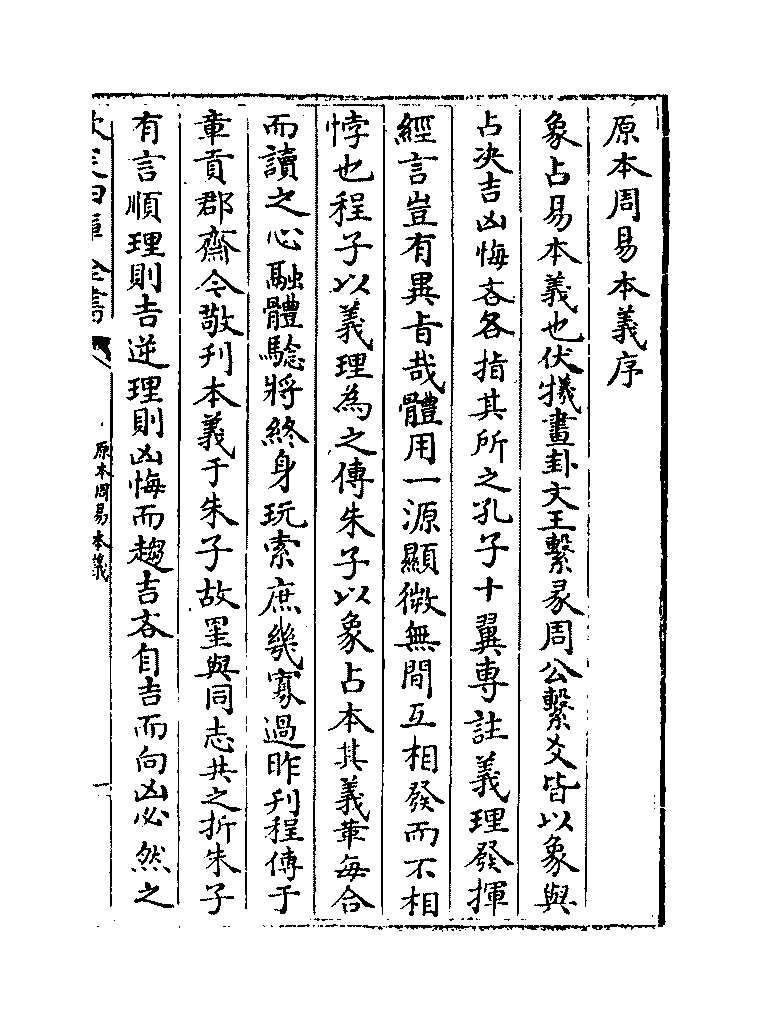 原本周易本義序
象占易本義也伏犧畫卦文王繫彖周公繫爻皆以象與
占決吉凶悔吝各指其所之孔子十翼專註義理發揮
經言豈有異旨哉體用一源顯微無間互相發而不相
悖也程子以義理為之傳朱子以象占本其義革每合
而讀之心融體驗將終身玩索庶幾寡過昨刋程傳于
章貢郡齋今敬刋本義于朱子故里與同志共之折朱子
有言順理則吉逆理則凶悔而趨吉吝自吉而向凶必然之
欽定四庫全書
原本周易本義
一